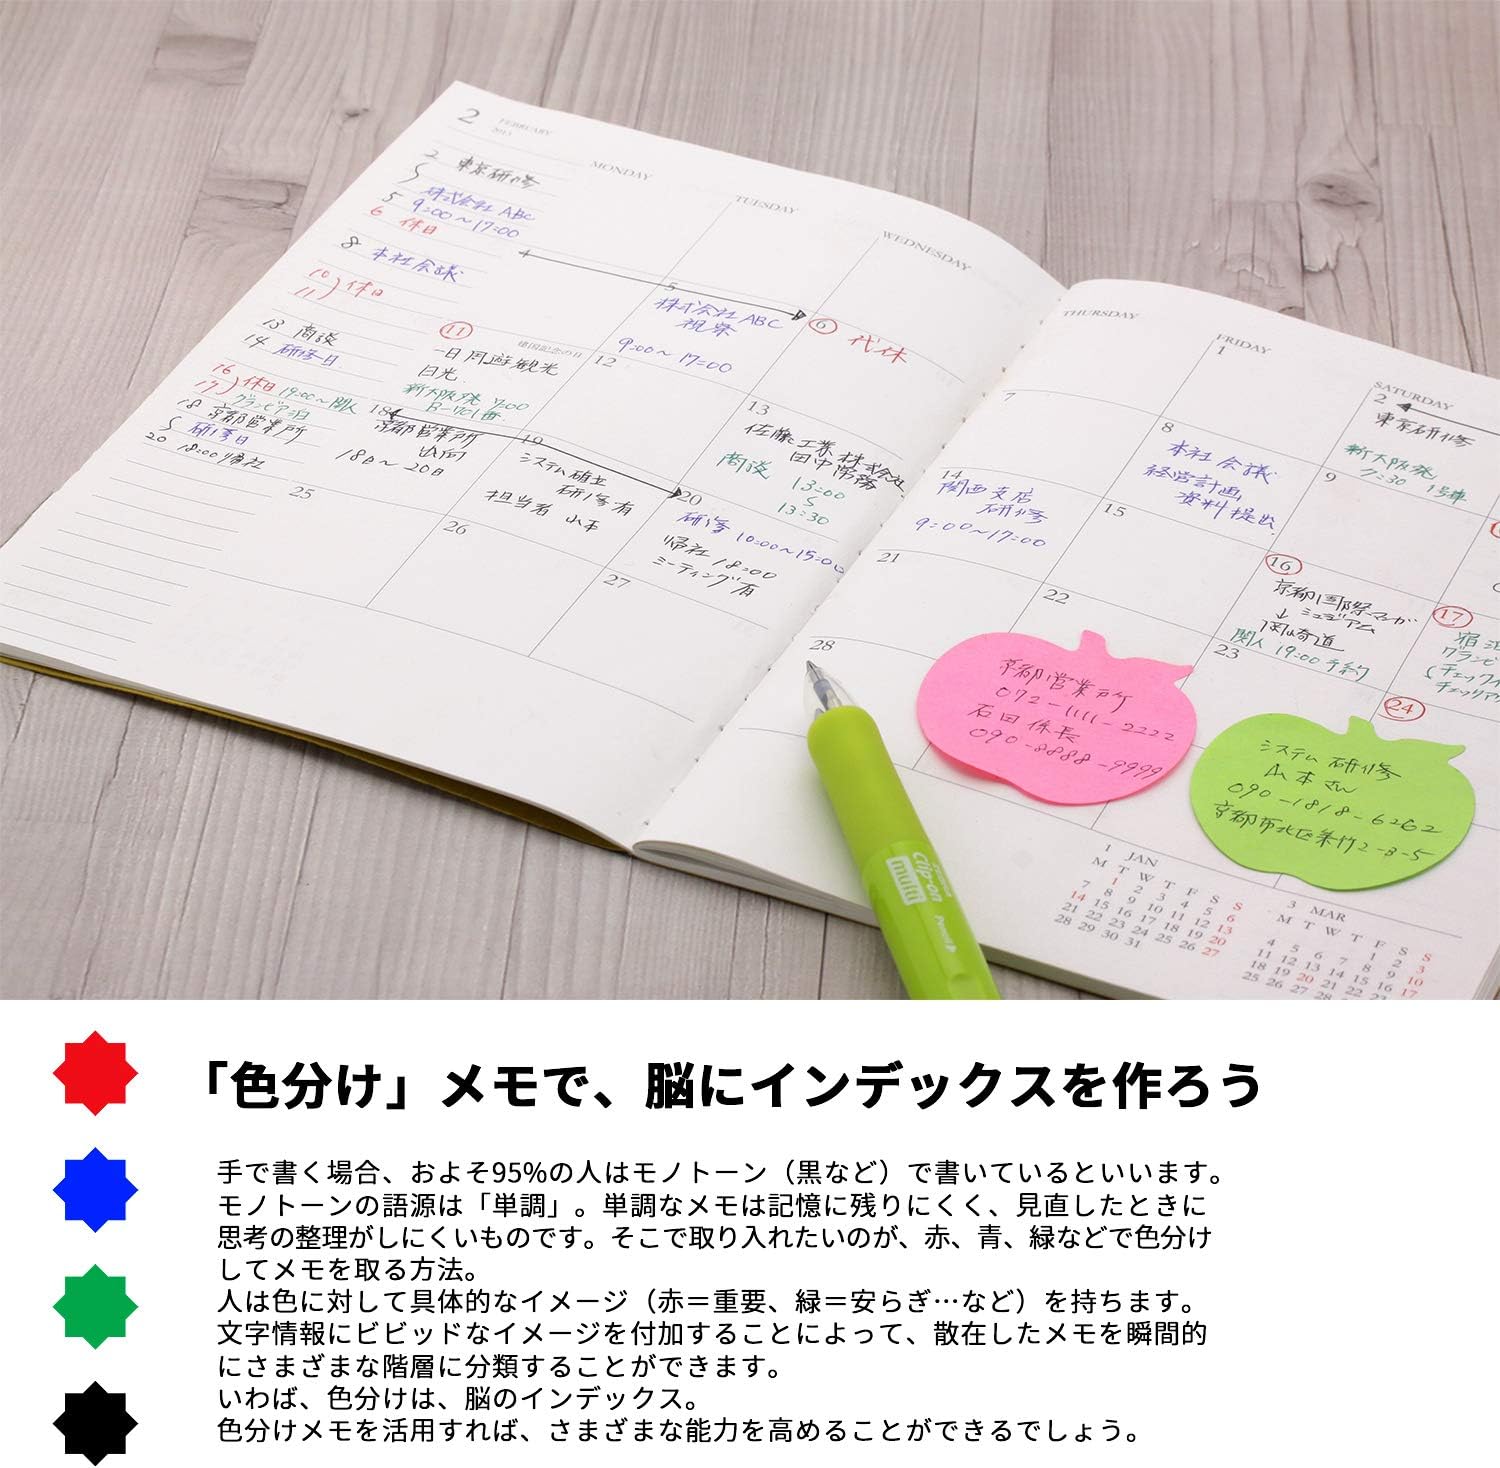 2 FEBRUARY
2013
MONDAY
TUESDAY
WEDNESDAY
THURSDAY
FRIDAY
SATURDAY
2 東京研修
5 株式会社 ABC
9:00~17:00
6 休日
8 本社会議
10 休日
11
13 商談
14 研修日
16 休日 19:00~関人
17 グランビア泊
18 京都営業所
研修日
20 18:00帰社
5
株式会社 ABC
視察
9:00~17:00
6 代休
11 建国記念の日
一日周遊観光
日光
新大阪発 7:00
12
13
佐藤工業株式会社
田中常務
商談
13:00
13:30
18
京都営業所
出向
18日~20日
19
システム確立
研修有
担当者 山本
20
研修 10:00~15:00
帰社 18:00
ミーティング有
25
26
27
1
2
東京研修
新大阪発
7:30 1号車
7
8
本社会議
経営計画
資料提出
9
14
関西支店
研修
9:00~17:00
15
16
京都国際マンガ
ミュージアム
↓
岡崎道
関人 19:00 予約
17
21
22
23
24
28
京都営業所
072-1111-2222
石田係長
090-8888-9999
システム研修
山本さん
090-1818-6262
京都市北区紫竹2-3-5
Clip-on
multi
1 JAN
M T W T F S S
1 2 3 4 5 6
7 8 9 10 11 12 13
14 15 16 17 18 19 20
21 22 23 24 25 26 27
28 29 30 31
3 MAR
M T W T F S S
1 2 3
4 5 6 7 8 9 10
11 12 13 14 15 16 17
18 19 20 21 22 23
25 26 27 28
「色分け」メモで、脳にインデックスを作ろう
手で書く場合、およそ95%の人はモノトーン（黒など）で書いているといいます。
モノトーンの語源は「単調」。単調なメモは記憶に残りにくく、見直したときに
思考の整理がしにくいものです。そこで取り入れたいのが、赤、青、緑などで色分け
してメモを取る方法。
人は色に対して具体的なイメージ（赤＝重要、緑＝安らぎ…など）を持ちます。
文字情報にビビッドなイメージを付加することによって、散在したメモを瞬間的
にさまざまな階層に分類することができます。
いわば、色分けは、脳のインデックス。
色分けメモを活用すれば、さまざまな能力を高めることができるでしょう。